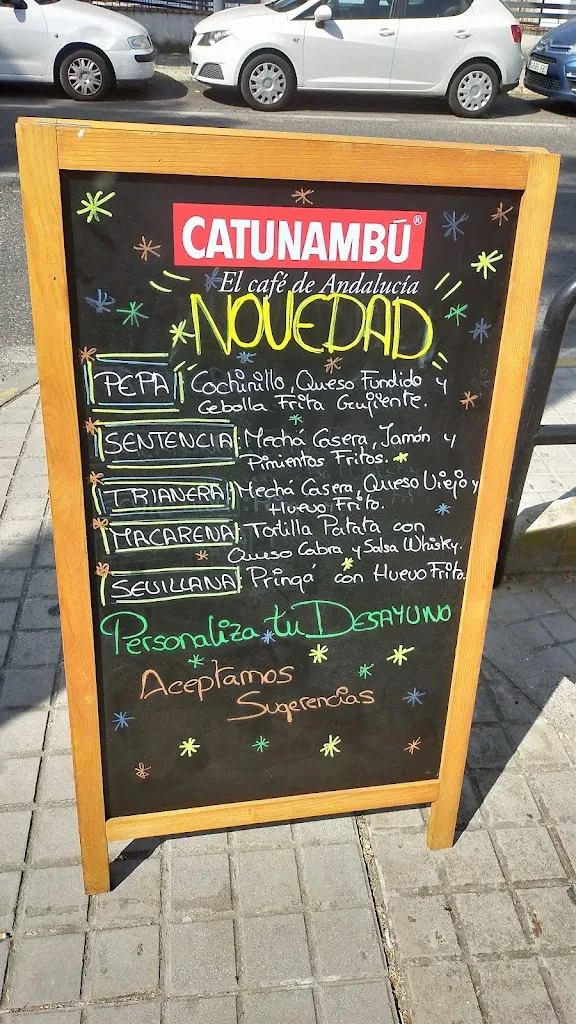 CATUNAMBÚ®
El café de Andalucía
NOVEDAD
PEPA: Cochinillo, Queso Fundido y
Cebolla Frita Crujiente.
SENTENCIA: Mechá Casera, Jamón y
Pimientos Fritos.
TRIANERA: Mechá Casera, Queso Viejo y
Huevo Frito.
MACARENA: Tortilla Patata con
Queso Cabra y Salsa Whisky.
SEVILLANA: Pringá con Huevo Frito.
Personaliza tu DESAYUNO
Aceptamos
Sugerencias